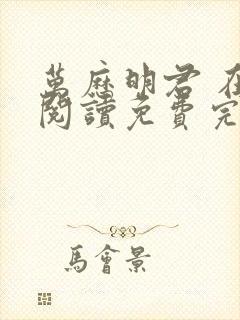 萬麻明君 在
閱讀免費完
馬會景